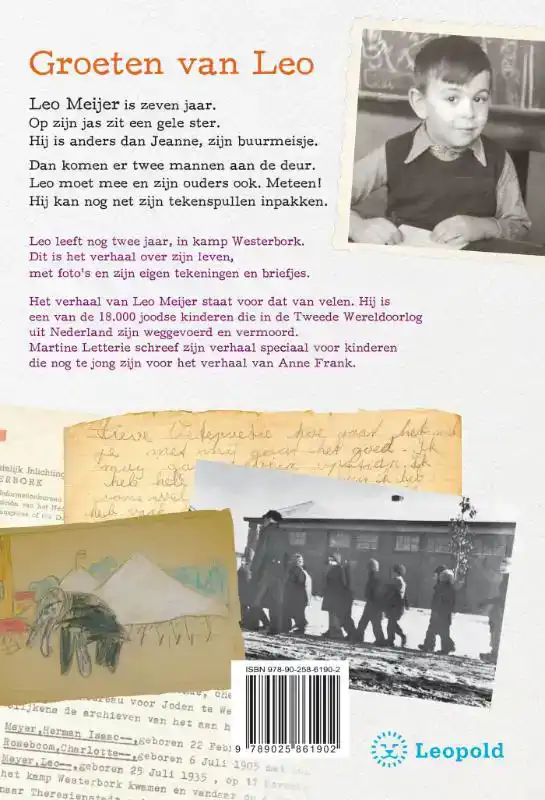 Groeten van Leo
Leo Meijer is zeven jaar.
Op zijn jas zit een gele ster.
Hij is anders dan Jeanne, zijn buurmeisje.
Dan komen er twee mannen aan de deur.
Leo moet mee en zijn ouders ook. Meteen!
Hij kan nog net zijn tekenspullen inpakken.
Leo leeft nog twee jaar, in kamp Westerbork.
Dit is het verhaal over zijn leven,
met foto's en zijn eigen tekeningen en briefjes.
Het verhaal van Leo Meijer staat voor dat van velen. Hij is
een van de 18.000 joodse kinderen die in de Tweede Wereldoorlog
uit Nederland zijn weggevoerd en vermoord.
Martine Letterie schreef zijn verhaal speciaal voor kinderen
die nog te jong zijn voor het verhaal van Anne Frank.
hoe gaat het met
je met mij gaat het goed. Ik
delijk Inlichting
ERBORK
Informatiebureau
van het Ned
ISBN 978-90-258-6190-2
9 789025 861902
Leopold
eau voor Joden te We
elijkens de archieven van het
Meyer, Herman Isaac--, geboren 22 Feb
Roseboom, Charlotte--, geboren 6 Juli 1905
Meyer, Leo--, geboren 29 Juli 1935 , op 17
het kamp Westerbork kwamen en vandaar
naar Theresienstadt